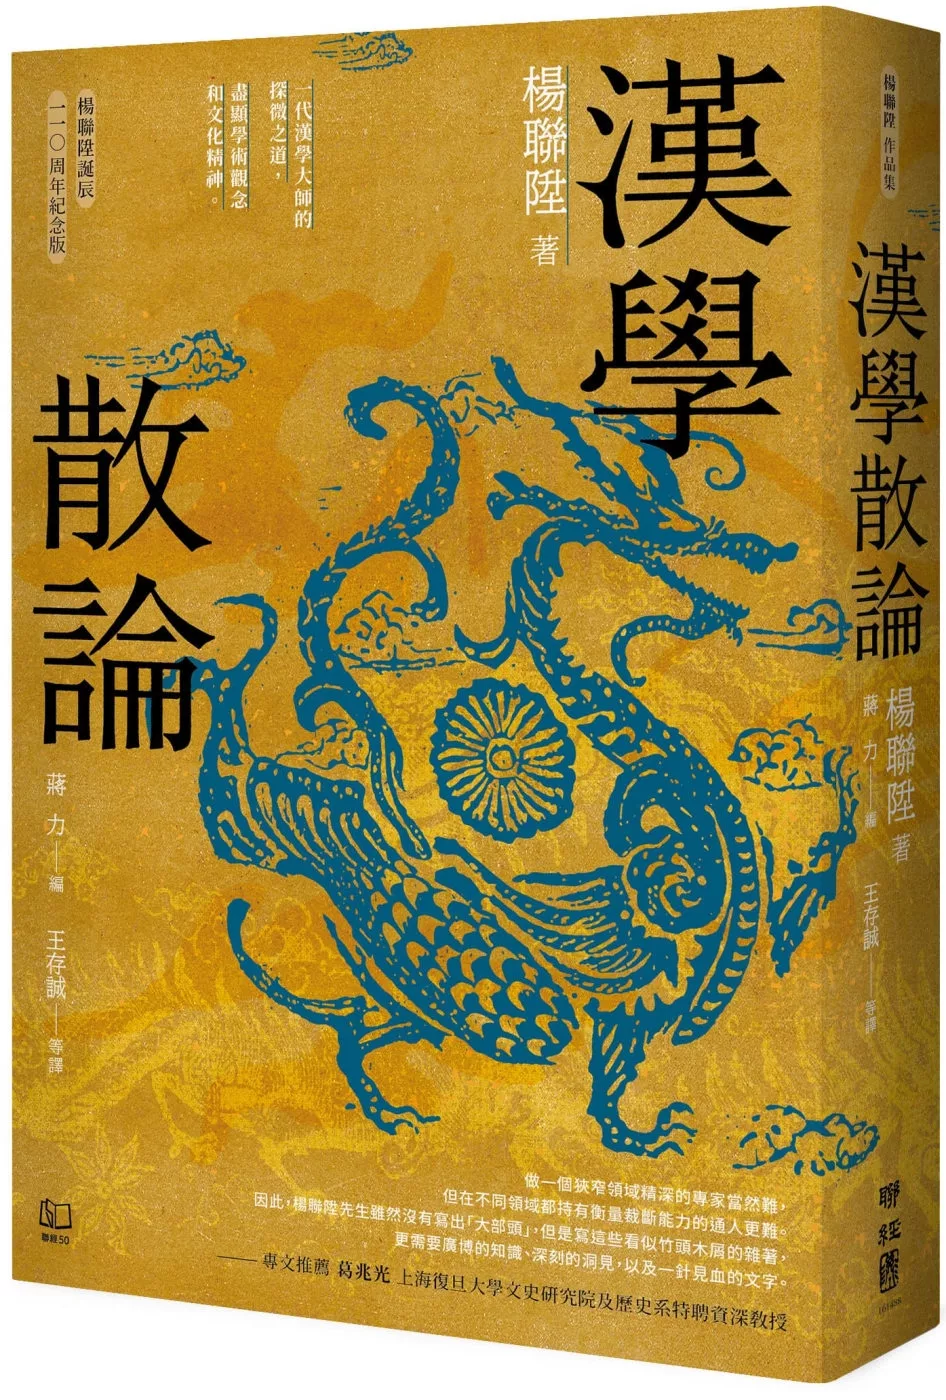 漢學
散論
楊聯陞 著
一代漢學大師的
探微之道，
盡顯學術觀念
和文化精神。
楊聯陞誕辰
一一〇周年紀念版
蔣力—編
王存誠—等譯
做一個狹窄領域精深的專家當然難，
但在不同領域都持有衡量裁斷能力的通人更難。
因此，楊聯陞先生雖然沒有寫出「大部頭」，但是寫這些看似竹頭木屑的雜著，
更需要廣博的知識、深刻的洞見，以及一針見血的文字。
——專文推薦 葛兆光 上海復旦大學文史研究院及歷史系特聘資深教授
聯經50
楊聯陞 作品集
漢學散論
楊聯陞 著
蔣力—編
王存誠—等譯
聯經
161488